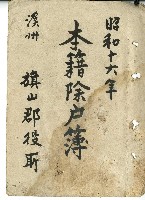 昭和十六年
本籍除户簿
溪州
旗山郡役所